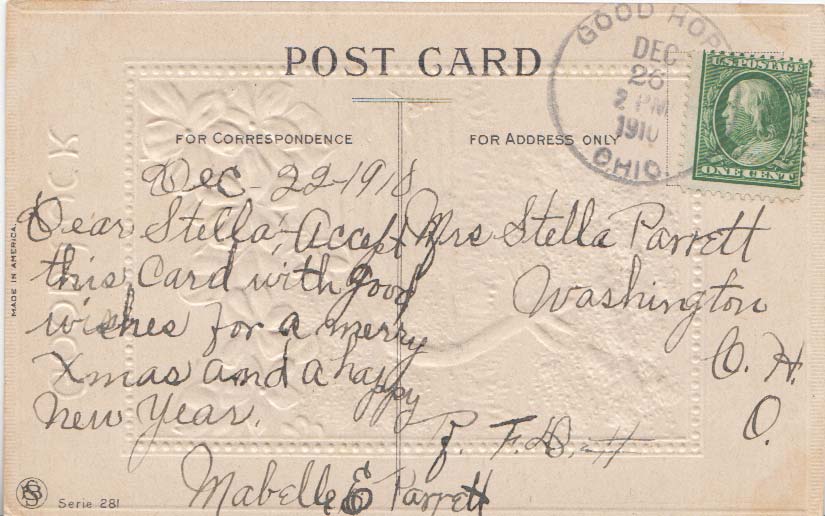 POST CARD
GOOD HOP
DEC
26
2 PM
1910
OHIO.
U.S. POSTAGE
ONE CENT
FOR CORRESPONDENCE
FOR ADDRESS ONLY
MADE IN AMERICA.
Dec - 22-1910
Dear Stella, - Accept
this Card with good
wishes for a merry
Xmas and a happy
New Year.
Mabelle E Parrett
Mrs Stella Parrett
Washington
C. H.
O.
Serie 281